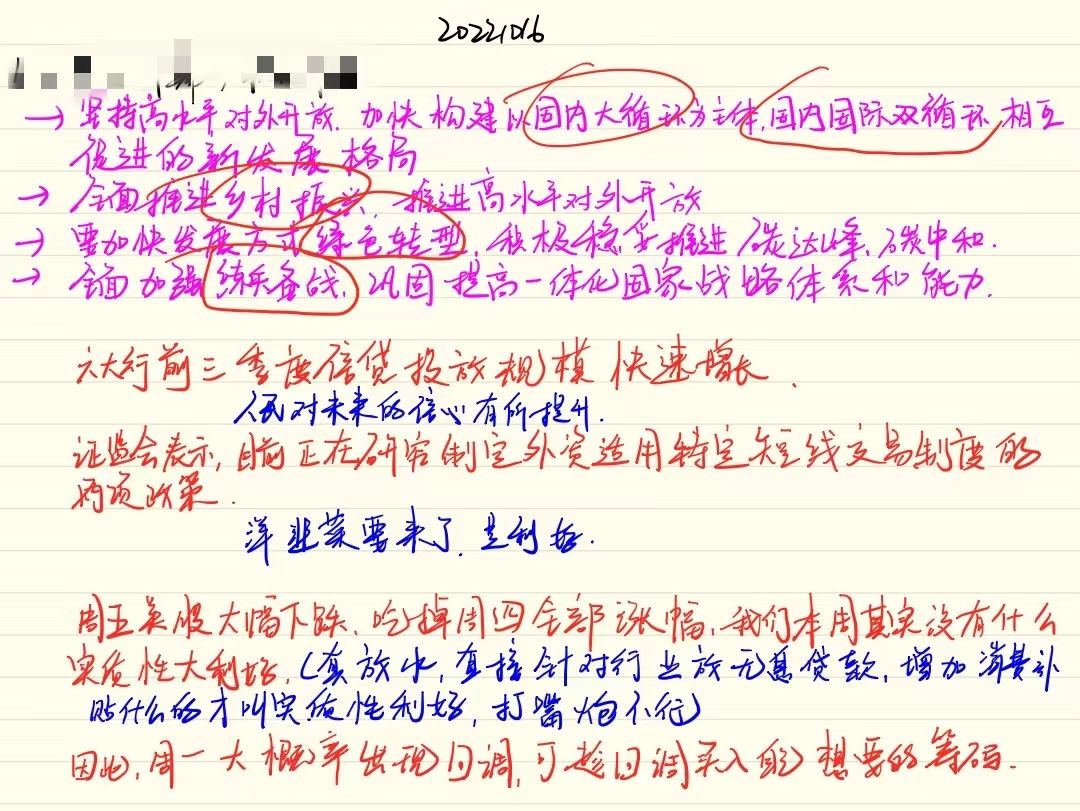 20221016
→ 坚持高水平对外开放. 加快构建以国内大循环为主体,国内国际双循环,相互
促进的新发展格局
→ 全面推进乡村振兴, 推进高水平对外开放
→ 要加快发展方式绿色转型, 积极稳妥推进碳达峰、碳中和.
→ 全面加强练兵备战, 巩固提高一体化国家战略体系和能力.
六大行前三季度信贷投放规模快速增长.
人民对未来的信心有所提升.
证监会表示, 目前正在研究制定外资适用特定短线交易制度的
两项政策.
洋韭菜要来了, 是利好.
周五美股大幅下跌、吃掉周四全部涨幅, 我们本周其实没有什么
实质性大利好, (真放水, 直接针对行业放无息贷款, 增加消费补
贴什么的才叫实质性利好, 打嘴炮不行)
因此, 周一大概率出现回调, 可趁回调买入自己想要的筹码.